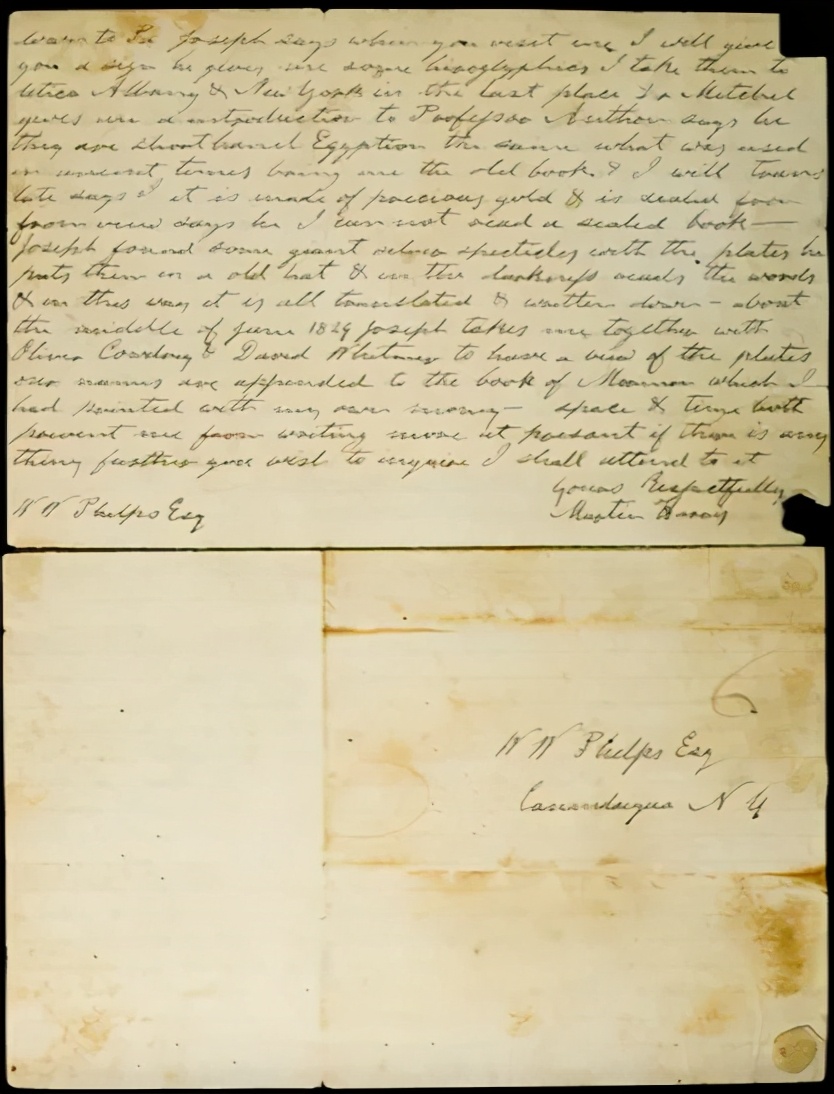 down to Pa Joseph says when you visit me I will give
you a sign he gives me some hiroglyphics I take them to
Utica Albany & New York in the last place Dr Mitchel
gives me a introduction to Professor Anthon says he
they are short hand Egyption the same what was used
in ancient times bring me the old book & I will trans
late says I it is made of precious gold & is sealed from
from view says he I can not read a sealed book —
Joseph found some giant silver specticles with the plates he
puts them in a old hat & in the darkness reads the words
& in this way it is all translated & written down — about
the middle of June 1829 Joseph takes me together with
Oliver Cowdery & David Whitmer to have a view of the plates
our names are appended to the book of Mormon which I
had printed with my own money — space & time both
prevent me from writing more at presant if there is any
thing further you wish to inquire I shall attend to it
Yours Respectfully
W W Phelps Esq
Martin Harris
6
W W Phelps Esq
Canandaigua N Y